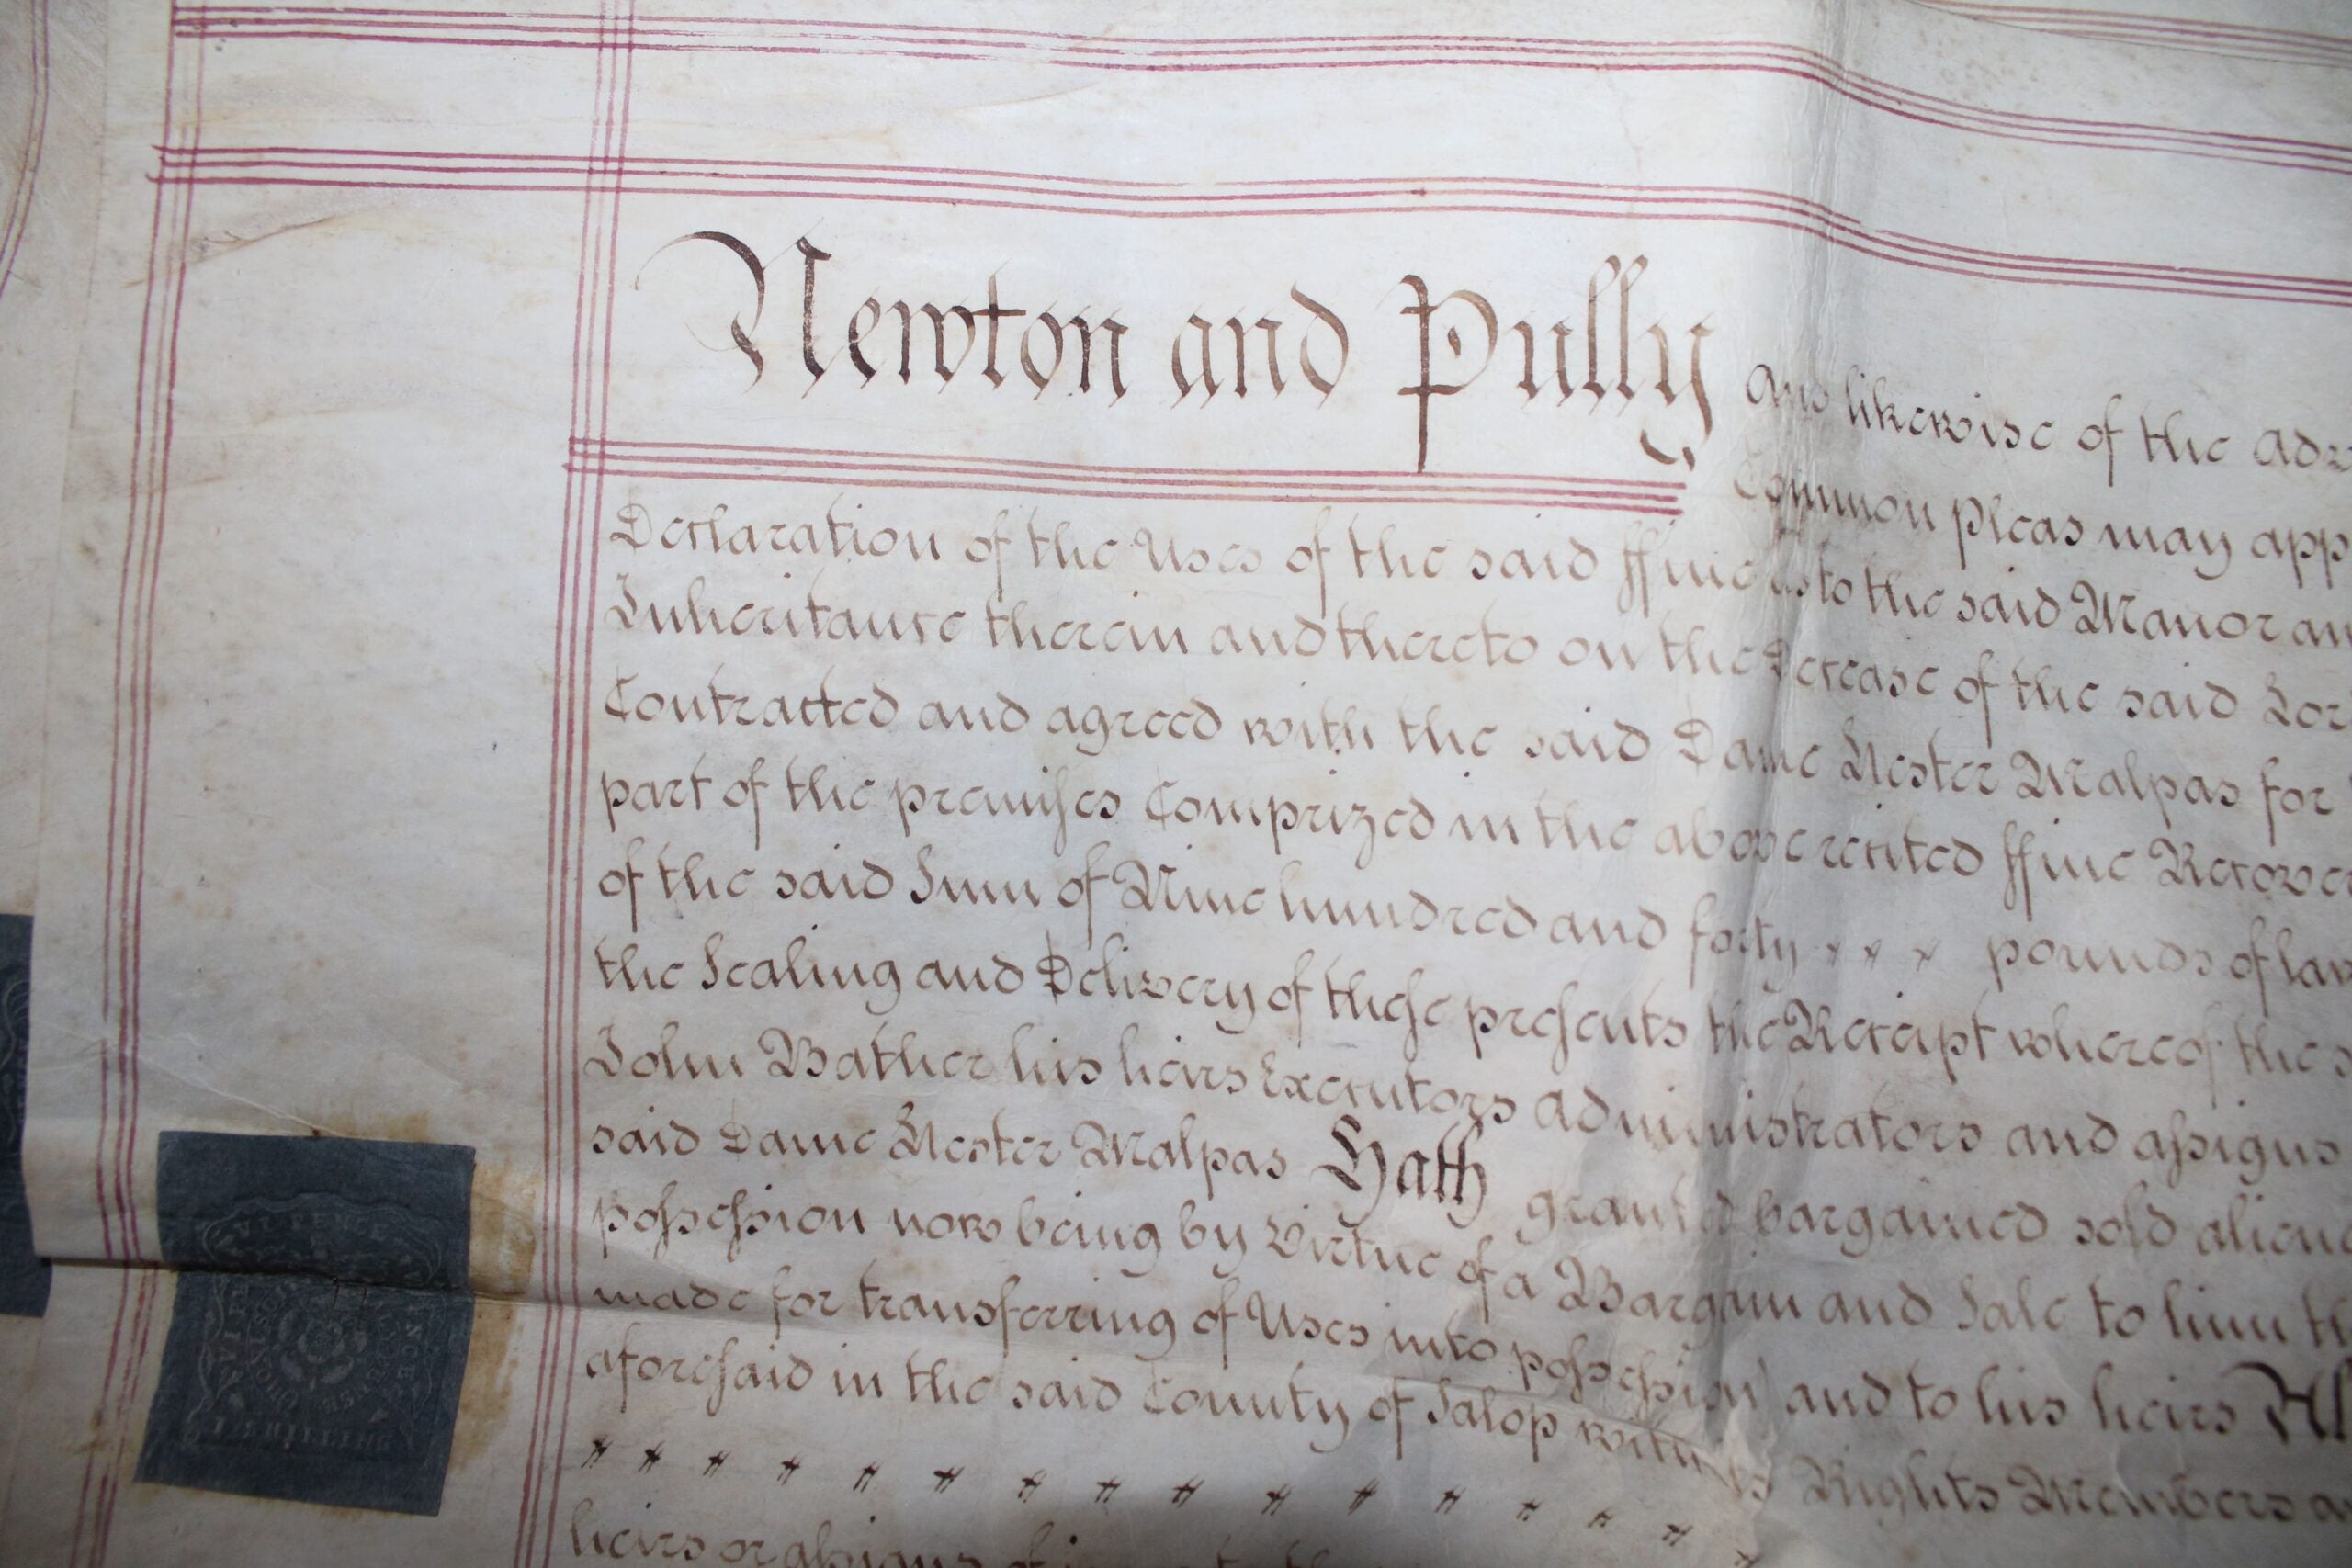 Newton and Pully and likewise of the Adv
Common Pleas may app
Declaration of the Uses of the said ffine as to the said Manor an
Inheritance therein and thereto on the Decease of the said Lor
Contracted and agreed with the said Dame Hester Malpas for
part of the premises Comprized in the above recited ffine Recover
of the said Sum of Nine hundred and forty pounds of law
the Sealing and Delivery of these presents the Receipt whereof the s
John Bather his heirs Executors Administrators and assigns
said Dame Hester Malpas Hath granted bargained sold aliene
possession now being by Virtue of a Bargain and Sale to him th
made for transferring of Uses into possession) and to his heirs All
aforesaid in the said County of Salop with its Rights Members a
heirs or assigns of
PENCE
SHILLINGS